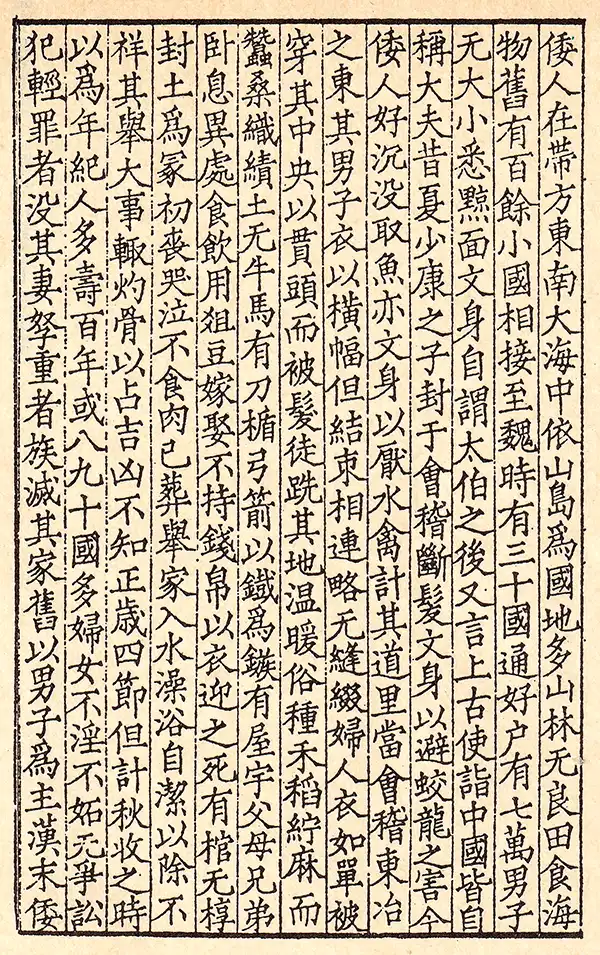 倭人在帶方東南大海中依山島爲國地多山林无良田食海
物舊有百餘小國相接至魏時有三十國通好户有七萬男子
无大小悉黥面文身自謂太伯之後又言上古使詣中國皆自
稱大夫昔夏少康之子封于會稽斷髮文身以避蛟龍之害今
倭人好沉没取魚亦文身以厭水禽計其道里當會稽東冶
之東其男子衣以橫幅但結束相連略无縫綴婦人衣如單被
穿其中央以貫頭而被髮徒跣其地温暖俗種禾稻紵麻而
蠶桑織績土无牛馬有刀楯弓箭以鐵爲鏃有屋宇父母兄弟
卧息異處食飲用俎豆嫁娶不持錢帛以衣迎之死有棺无椁
封土爲冢初喪哭泣不食肉已葬舉家入水澡浴自潔以除不
祥其舉大事輙灼骨以占吉凶不知正歳四節但計秋收之時
以爲年紀人多壽百年或八九十國多婦女不淫不妬无爭訟
犯輕罪者没其妻孥重者族滅其家舊以男子爲主漢末倭